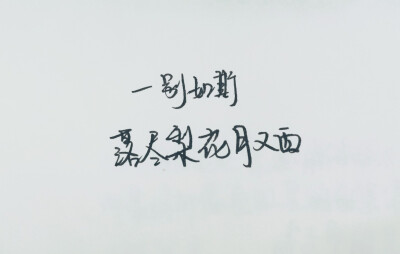 一别如斯
落尽梨花月又西